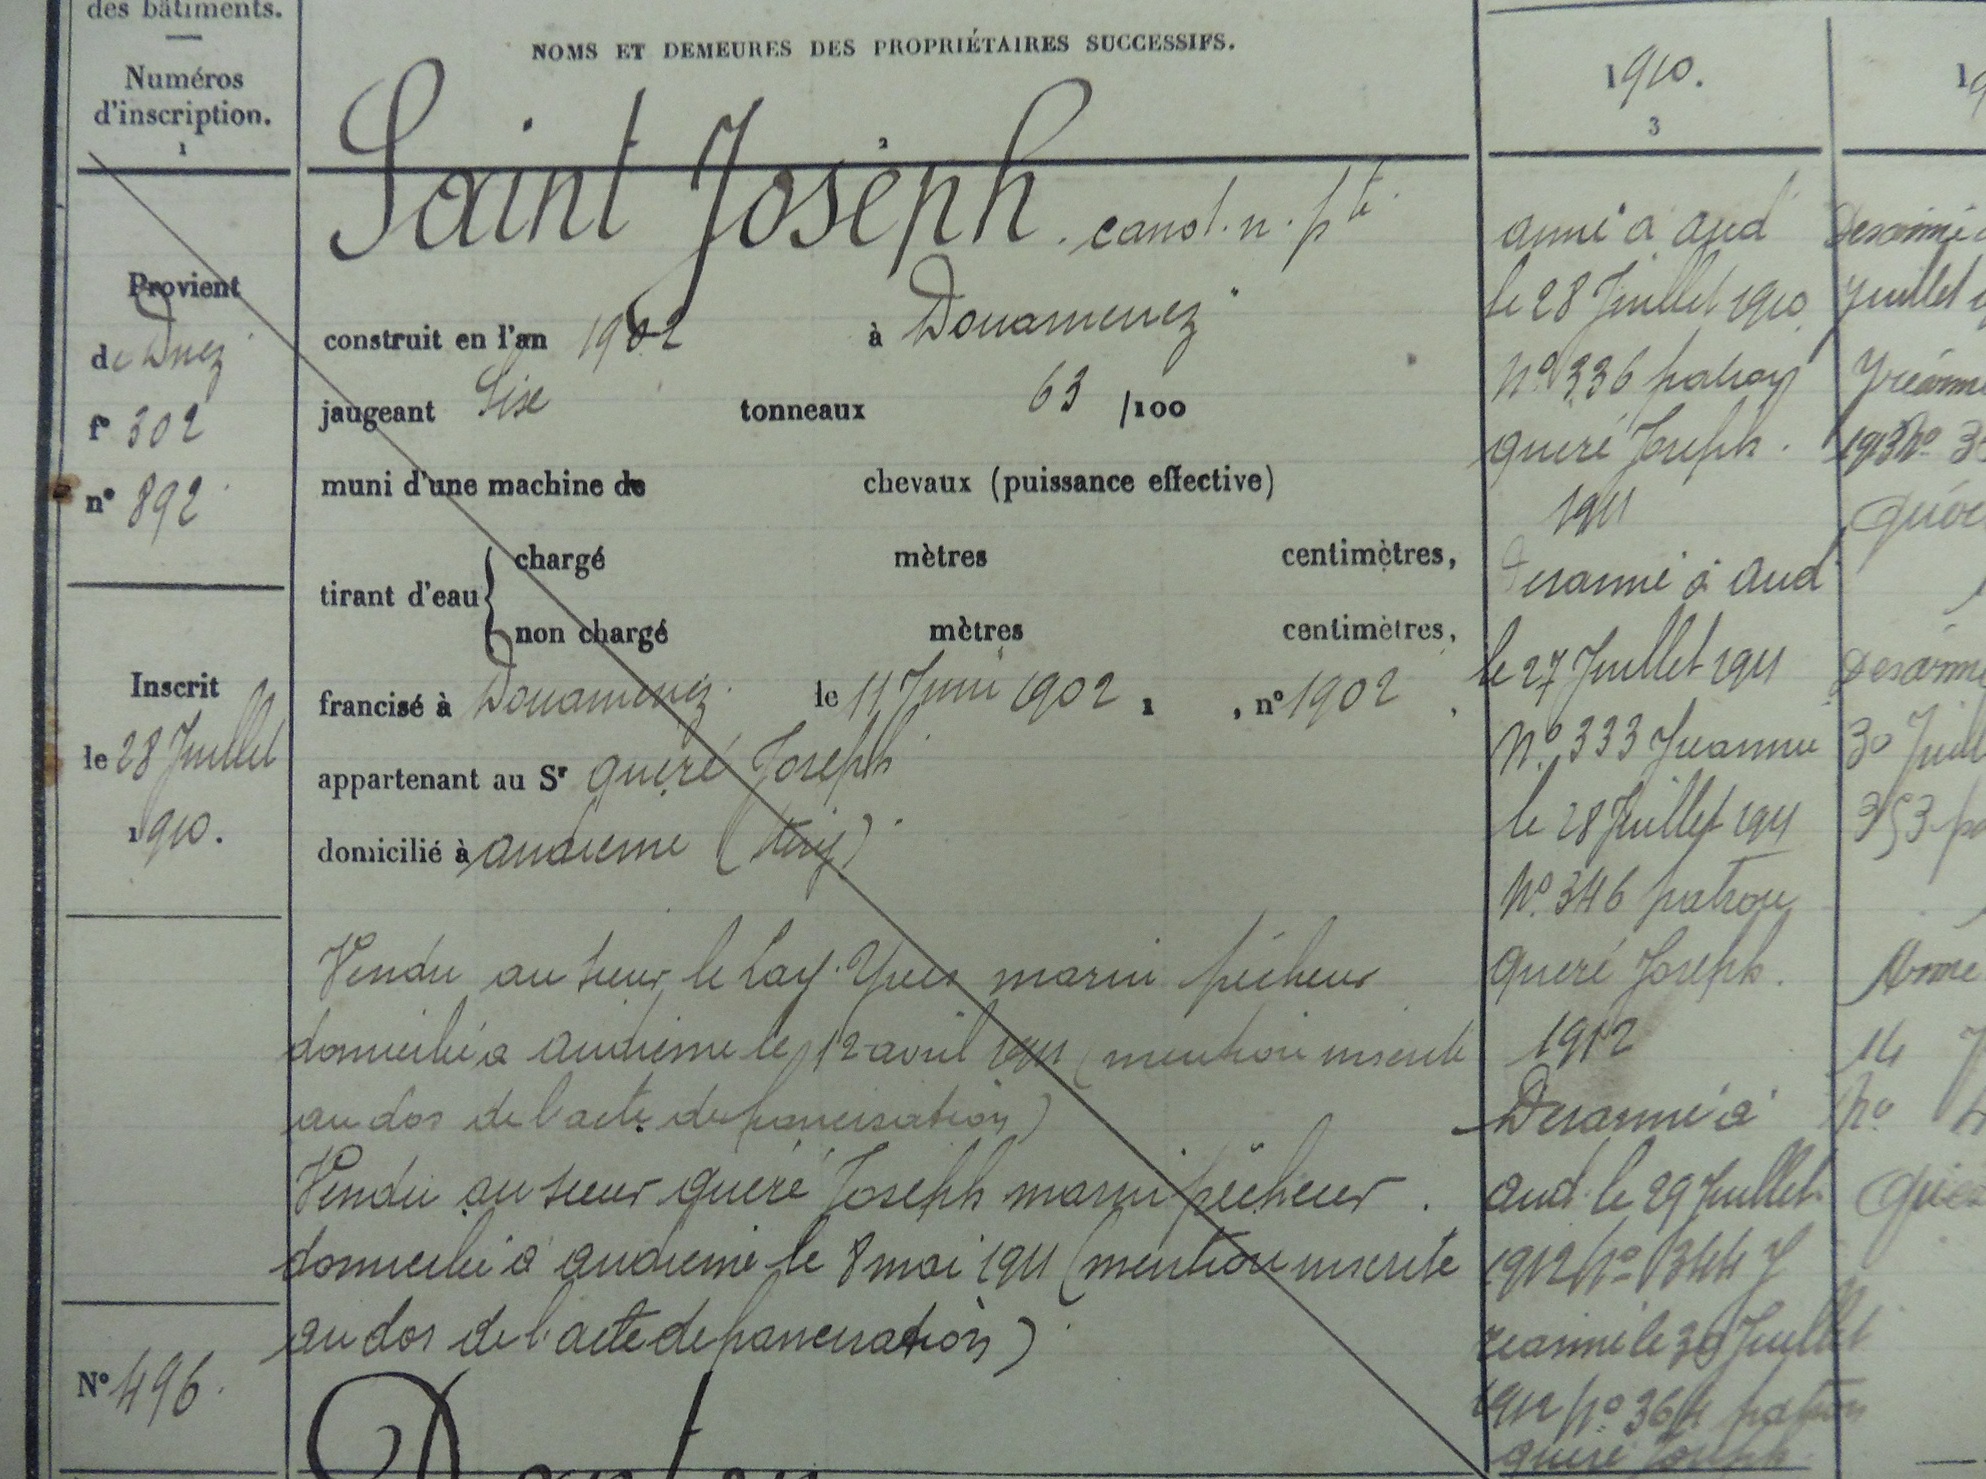 des bâtiments.
Numéros
d'inscription.
1
NOMS ET DEMEURES DES PROPRIÉTAIRES SUCCESSIFS.
2
1910.
3
19
Saint Joseph. canot. n. pté.
Provient
de Dnez
fº 302
nº 892
construit en l'an 1902 à Douarnenez
jaugeant Sise tonneaux 63 /100
muni d'une machine de chevaux (puissance effective)
tirant d'eau
chargé mètres centimètres,
non chargé mètres centimètres,
francisé à Douarnenez. le 11 Juin 1902, nº 1902,
appartenant au Sr Quéré Joseph
domicilié à Audierne
Inscrit
le 28 Juillet
1910.
Vendu au sieur le Lay Yves marin pêcheur
domicilié à Audierne le 12 avril 1911 (mention inscrite
au dos de l'acte de francisation)
Vendu au sieur Quéré Joseph marin pêcheur.
domicilié à Audierne le 8 mai 1911 (mention inscrite
au dos de l'acte de francisation)
Nº 496.
armé à Aud
le 28 Juillet 1910
Nº 336 patron
Quéré Joseph.
1911
Desarmé à Aud
le 27 Juillet 1911
Nº 333 Rearmé
le 28 Juillet 1911
Nº 346 patron
Quéré Joseph.
1912
Desarmé à
Aud. le 29 Juillet
1912 Nº 344
rearmé le 30 Juillet
1912 Nº 364 patron
Quéré Joseph
Desarmé
Juillet
1913 Nº
Quéré
Desarmé
30 Juill
353
14
Nº
Danton